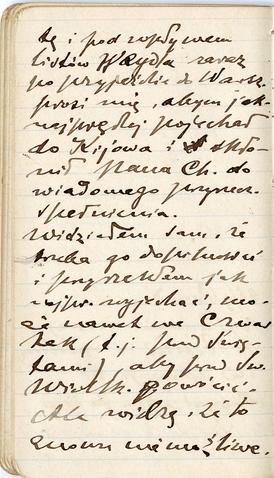 tę i pod wpływem
listów Włydla zaraz
po przyjeździe do Warsz.
prosi mię, abym jak
najprędzej pojechał
do Kijowa i skło-
nił Pana Ch. do
wiadomego przyrzecz.
spełnienia.
Widziałem sam, że
trzeba go dopilnować
i przyrzekłem jak
najpr. wyjechać, mo-
że nawet we Czwar-
tek (t.j. pod świę-
tami) aby pod św.
Wielk. powrócić.
Ale widzę, że to
znowu niemożliwe.